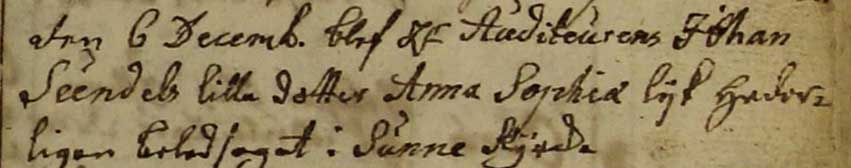 den 6 Decemb. blef H:r Auditeurens Johan
Seendels lilla dotter Anna Sophiæ lijk heder=
ligen beledsagat i Sunne Kyrcka